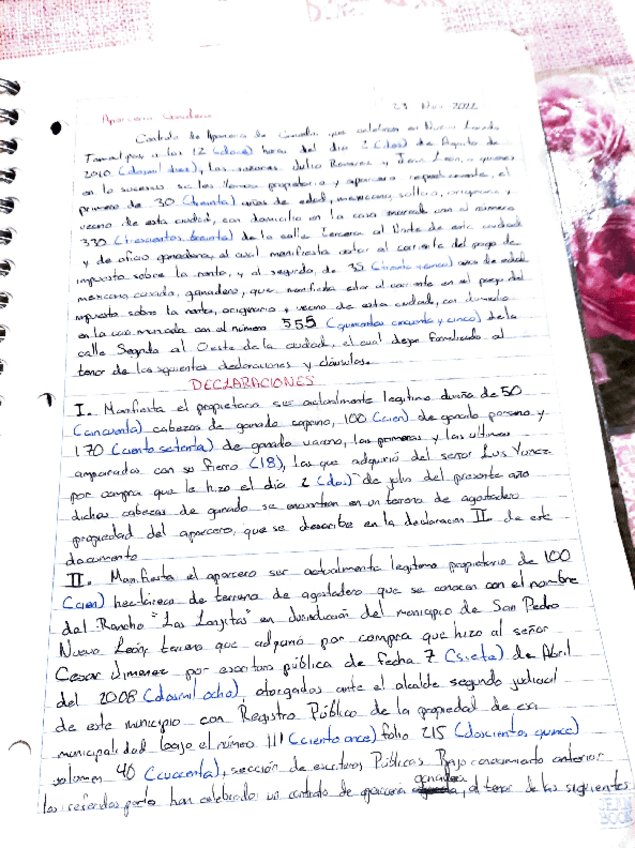 Aparcería Ganadera
23 Nov 2022
Contrato de Aparcería de Ganado que celebran en Nuevo Laredo
Tamaulipas a las 12 (doce) horas del dia 2 (dos) de Agosto de
2010 (dosmil diez), los señores Julio Ramirez y Jean Leon, a quienes
en lo sucesivo se les llamara propietario y aparcero respectivamente, el
primero de 30 (treinta) años de edad, mexicano, soltero, originario y
vecino de esta ciudad, con domicilio en la casa marcada con el número
330 (trescientos treinta) de la calle Tercera al Norte de esta ciudad
y de oficio ganadero, el cual manifiesta estar al corriente del pago de
impuesto sobre la renta, y al segundo, de 35 (treinta y cinco) años de edad
mexicano, casado, ganadero, que manifiesta estar al corriente en el pago del
impuesto sobre la renta, originario y vecino de esta ciudad, con domicilio
en la casa marcada con el número 555 (quinientos cincuenta y cinco) de la
calle Segunda al Oeste de la ciudad, el cual dejan formalizado al
tenor de los siguientes declaraciones y cláusulas.
DECLARACIONES
I. Manifiesta el propietario ser actualmente legitimo dueño de 50
(cincuenta) cabezas de ganado caprino, 100 (cien) de ganado porcino y
170 (ciento setenta) de ganado vacuno, las primeras y las ultimas
amparadas con su fierro (18), las que adquirió del señor Luis Yanez
por compra que le hizo el dia 2 (dos) de julio del presente año
dichas cabezas de ganado se encuentran en un terreno de agostadero
propiedad del aparcero, que se describe en la declaracion II de este
documento
II. Manifiesta el aparcero ser actualmente legitimo propietario de 100
(cien) hectáreas de terreno de agostadero que se conocen con el nombre
del Rancho "Las Lonjitas" en Jurisdicción del municipio de San Pedro
Nuevo León, terreno que adquirió por compra que hizo al señor
Cesar Jimenez por escritura pública de fecha 7 (siete) de Abril
del 2008 (dosmil ocho), otorgados ante el alcalde segundo judicial
de este municipio con Registro Público de la propiedad de esa
municipalidad bajo el número 111 (ciento once) folio 215 (doscientos quince)
volumen 40 (cuarenta), sección de escrituras Públicas Bajo conocimiento anterior
los referidos partes han celebrado un contrato de aparceria ganadera, al tenor de las siguientes
JEAN
BOOK